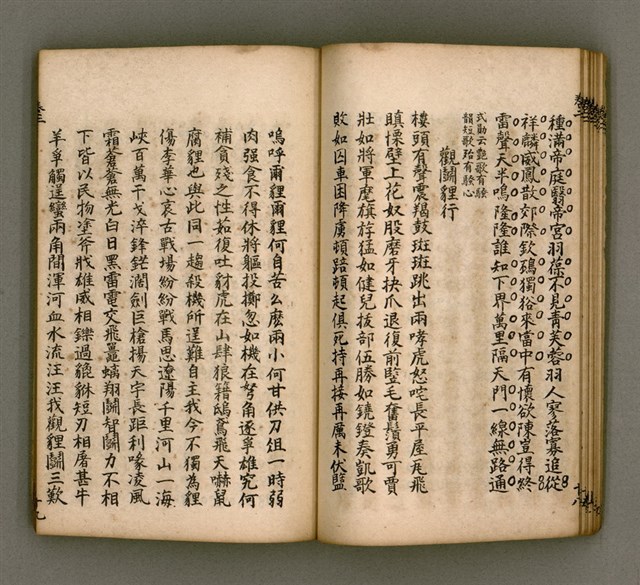 種滿帝庭翳帝宮羽葆不見青芙蓉羽人寥落寡追從
祥麟威鳳散郊際欽鵶獨裕來當中有懷欲陳豈得終
雷聲天半鳴隆隆誰知下界萬里隔天門一線無路通
式勛云艷歌有
韻短歌殆有心
觀鬪貍行
樓頭有聲震羯鼓斑斑跳出兩哮虎怒咤長平屋瓦飛
瞋慄壁上花奴股磨牙抉爪退復前豎毛奮鬚勇可賈
壯如將軍麾旗斿猛如健兒拔部伍勝如鏡鐙奏凱歌
敗如囚車困降虜頓踣頓起俱死持再接再厲未伏盬
嗚呼兩貍爾貍何自苦么麽兩小何甘供刀俎一時弱
肉强食不得休將軀投擲忽如機在弩角逐寧雄究何
補貪殘之性如復吐豺虎在山肆狼籍鴟鳶飛天嚇鼠
腐貍也與此同一趨殺機所逞難自主我今不獨為貍
傷李華心哀古戰場紛紛戰馬思遼陽千里河山一海
峽百萬干戈淬鋒鋩濶劍巨槍揚天宇長距利喙凌風
霜蒼蒼無光白日黑雷電交飛鼉蠕翔鬪智鬪力不相
下皆以民物塗斧戕雄威相鑠過貔貅短刃相屠甚牛
羊爭觸逞蠻兩角間渾河血水流汪汪我觀貍鬪三歎